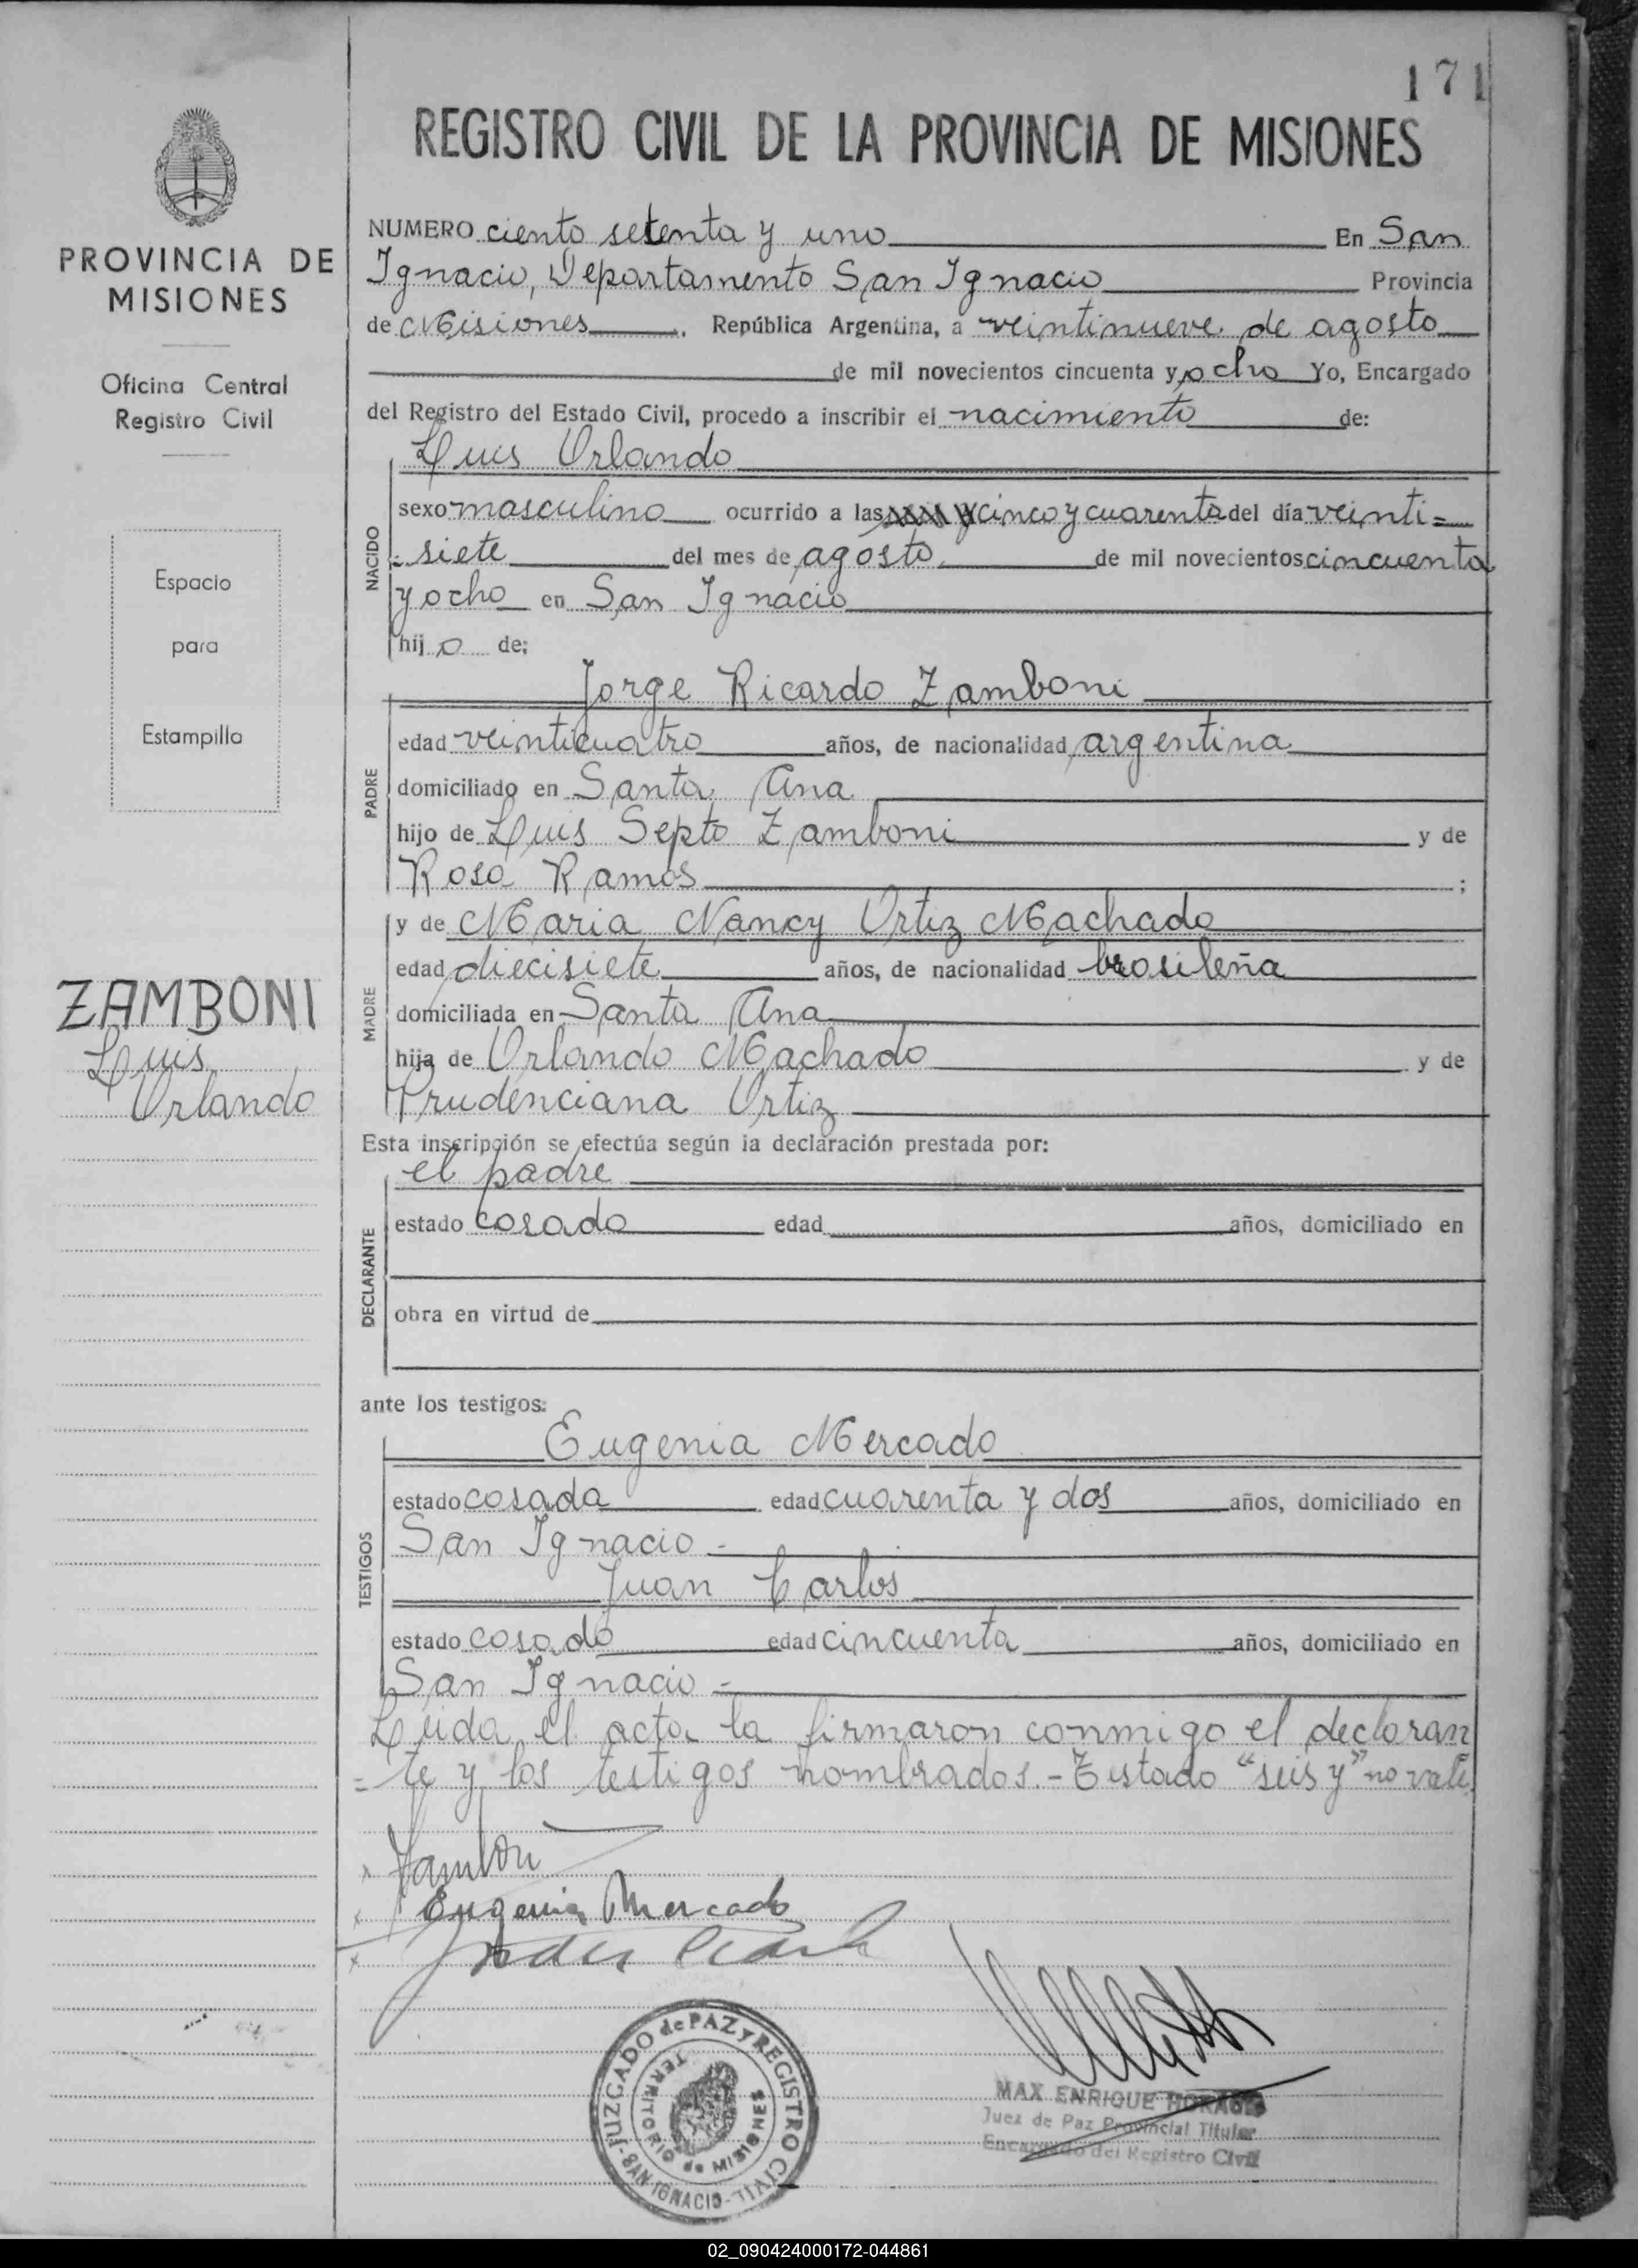 171
REGISTRO CIVIL DE LA PROVINCIA DE MISIONES
PROVINCIA DE
MISIONES
Oficina Central
Registro Civil
Espacio
para
Estampilla
ZAMBONI
Luis
Orlando
NUMERO ciento setenta y uno En San
Ignacio, Departamento San Ignacio Provincia
de Misiones. República Argentina, a veintinueve de agosto
de mil novecientos cincuenta y ocho Yo, Encargado
del Registro del Estado Civil, procedo a inscribir el nacimiento de:
Luis Orlando
NACIDO
sexo masculino ocurrido a las cinco y cuarenta del día veinti=
= siete del mes de agosto de mil novecientos cincuenta
y ocho en San Ignacio
hijo de;
Jorge Ricardo Zamboni
PADRE
edad veinticuatro años, de nacionalidad argentina
domiciliado en Santa Ana
hijo de Luis Septo Zamboni y de
Rosa Ramos ;
y de Maria Nancy Ortiz Machado
MADRE
edad diecisiete años, de nacionalidad brasileña
domiciliada en Santa Ana
hija de Orlando Machado y de
Prudenciana Ortiz
Esta inscripción se efectúa según la declaración prestada por:
el padre
DECLARANTE
estado casado edad años, domiciliado en
obra en virtud de
ante los testigos:
Eugenia Mercado
TESTIGOS
estado casada edad cuarenta y dos años, domiciliado en
San Ignacio -
Juan Carlos
estado casado edad cincuenta años, domiciliado en
San Ignacio -
Leida el acta la firmaron conmigo el declaran
= te y los testigos nombrados.- Testado "seis y" no vale.
Zamboni
Eugenia Mercado
JUZGADO de PAZ y REGISTRO CIVIL - SAN IGNACIO -
TERRITORIO de MISIONES
MAX ENRIQUE
Juez de Paz Provincial Titular
Encargado del Registro Civil
02_090424000172-044861